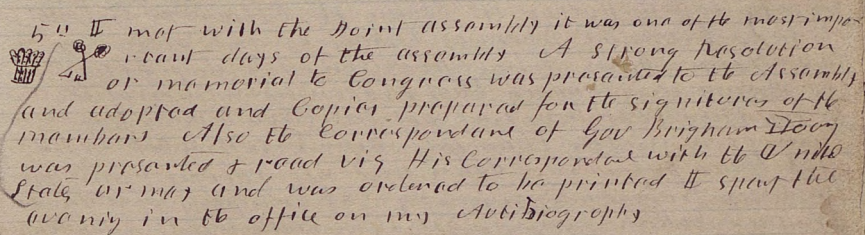 5th I met with the Joint assembly it was one of the most impo-
rtant days of the assembly A strong Resolution
or memorial to Congress was presented to the Assembly
and adopted and Copies prepared for the signitures of the
members Also the Correspondane of Gov Brigham Young
was presented & read viz His Correspondae with the United
States armey and was ordered to be printed I spent the
evening in the office on my Autibiography